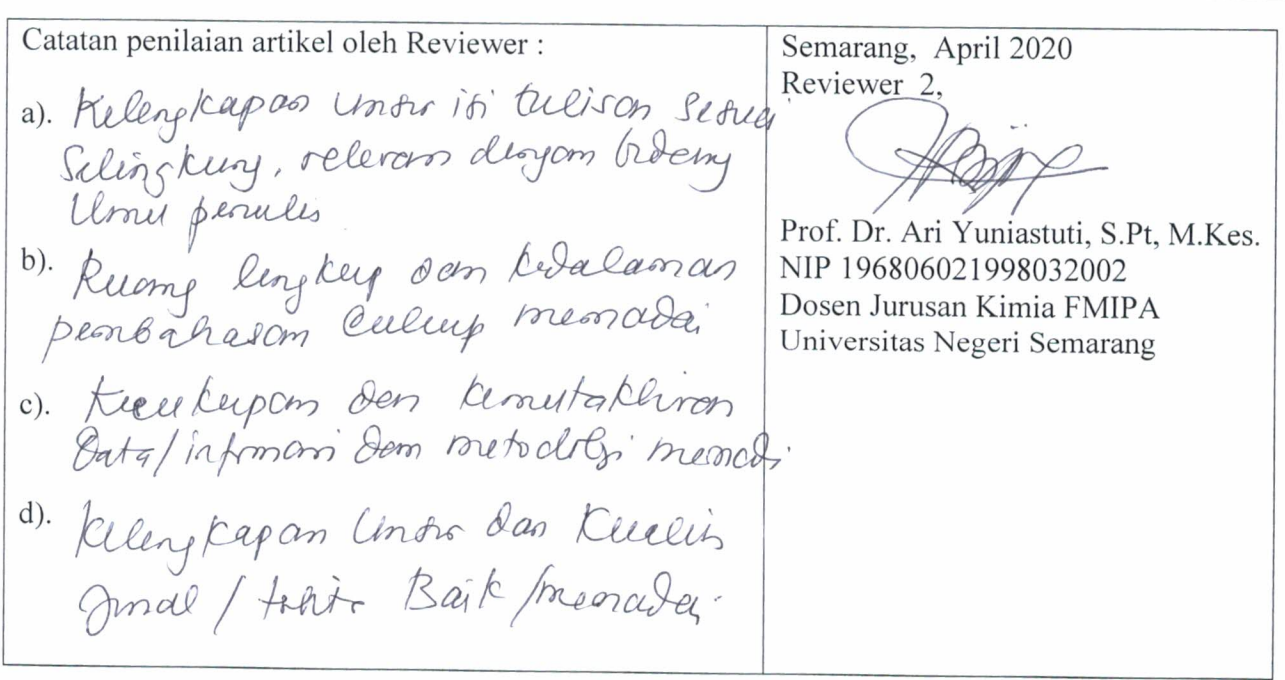 Catatan penilaian artikel oleh Reviewer :
a). Kelengkapan unsur isi tulisan sesuai
Selingkung, relevan dengan bidang
Ilmu penulis
b). Ruang lingkup dan kedalaman
pembahasan Cukup memadai
c). Kecukupan dan kemutakhiran
Data/informasi dan metodologi memadai
d). Kelengkapan Unsur dan Kualitas
Jurnal / Baik/memadai
Semarang, April 2020
Reviewer 2,
Prof. Dr. Ari Yuniastuti, S.Pt, M.Kes.
NIP 196806021998032002
Dosen Jurusan Kimia FMIPA
Universitas Negeri Semarang